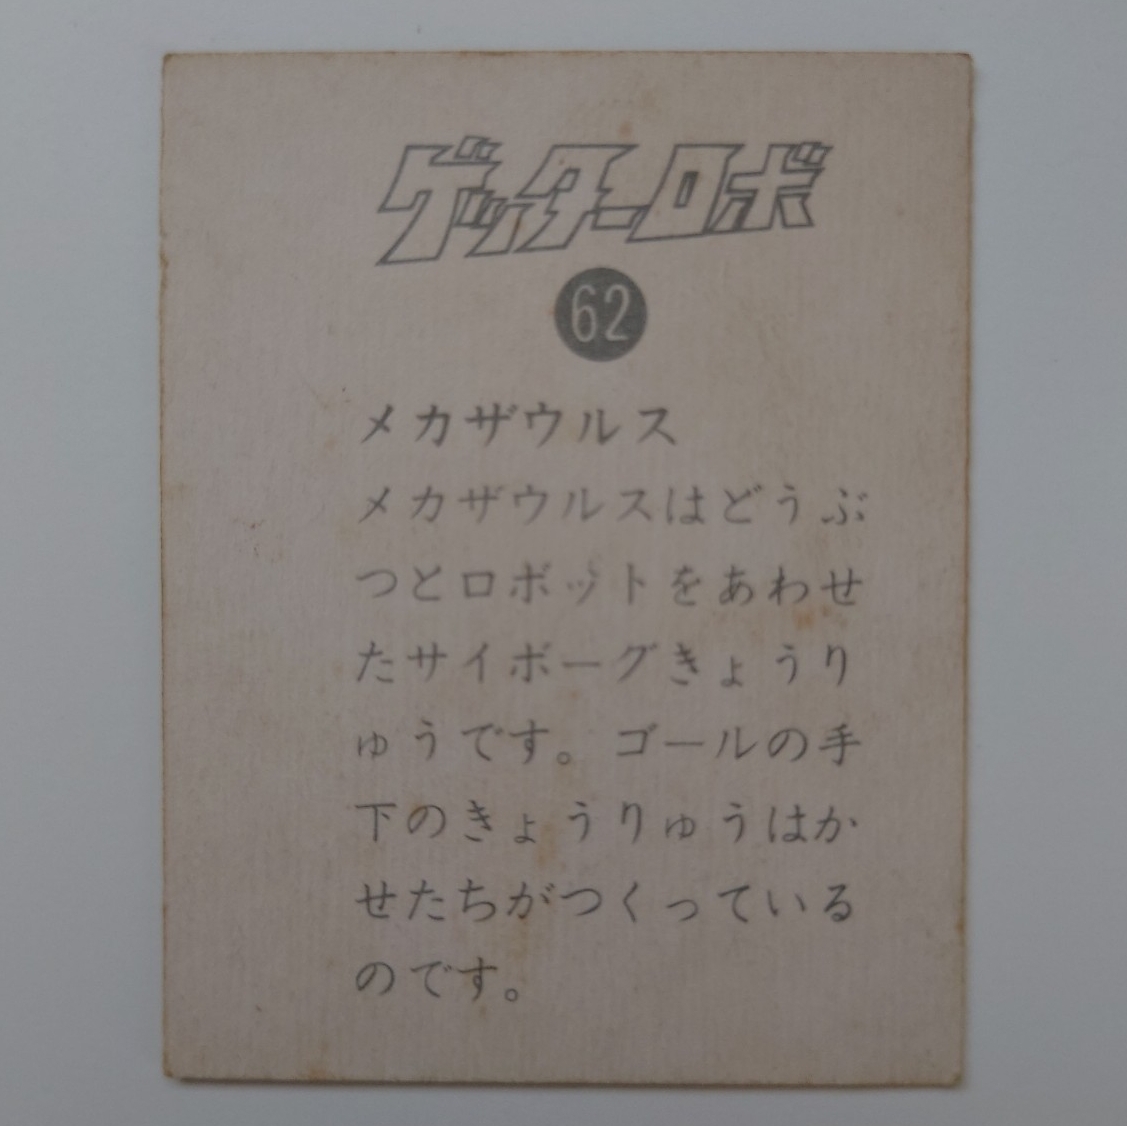 ゲッターロボ
62
メカザウルス
メカザウルスはどうぶ
つとロボットをあわせ
たサイボーグきょうり
ゅうです。ゴールの手
下のきょうりゅうはか
せたちがつくっている
のです。